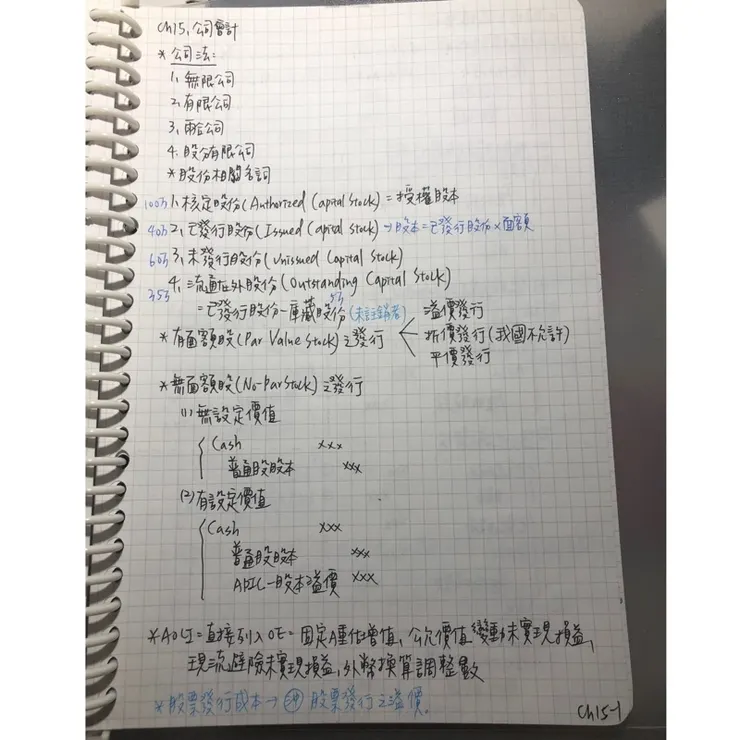 Ch15, 公司會計
* 公司法:
1、無限公司
2、有限公司
3、兩合公司
4、股份有限公司
*股份相關名詞
100万 1、核定股份(Authorized Capital Stock) = 授權股本
40万 2、已發行股份(Issued Capital Stock) → 股本=已發行股份×面額
60万 3、未發行股份(Unissued Capital Stock)
35万 4、流通在外股份(Outstanding Capital Stock)
=已發行股份-庫藏股份(未註銷者)
5万
*有面額股(Par Value Stock)之發行
溢價發行
折價發行(我國不允許)
平價發行
*無面額股(No-Par Stock)之發行
(1) 無設定價值
Cash xxx
普通股股本 xxx
(2) 有設定價值
Cash xxx
普通股股本 xxx
APIC-股本溢價 xxx
*AOCI=直接列入OE=固定A重估增值,公允價值變動未實現損益,
現流避險未實現損益,外幣換算調整數
*股票發行成本→沖股票發行之溢價。
Ch15-1